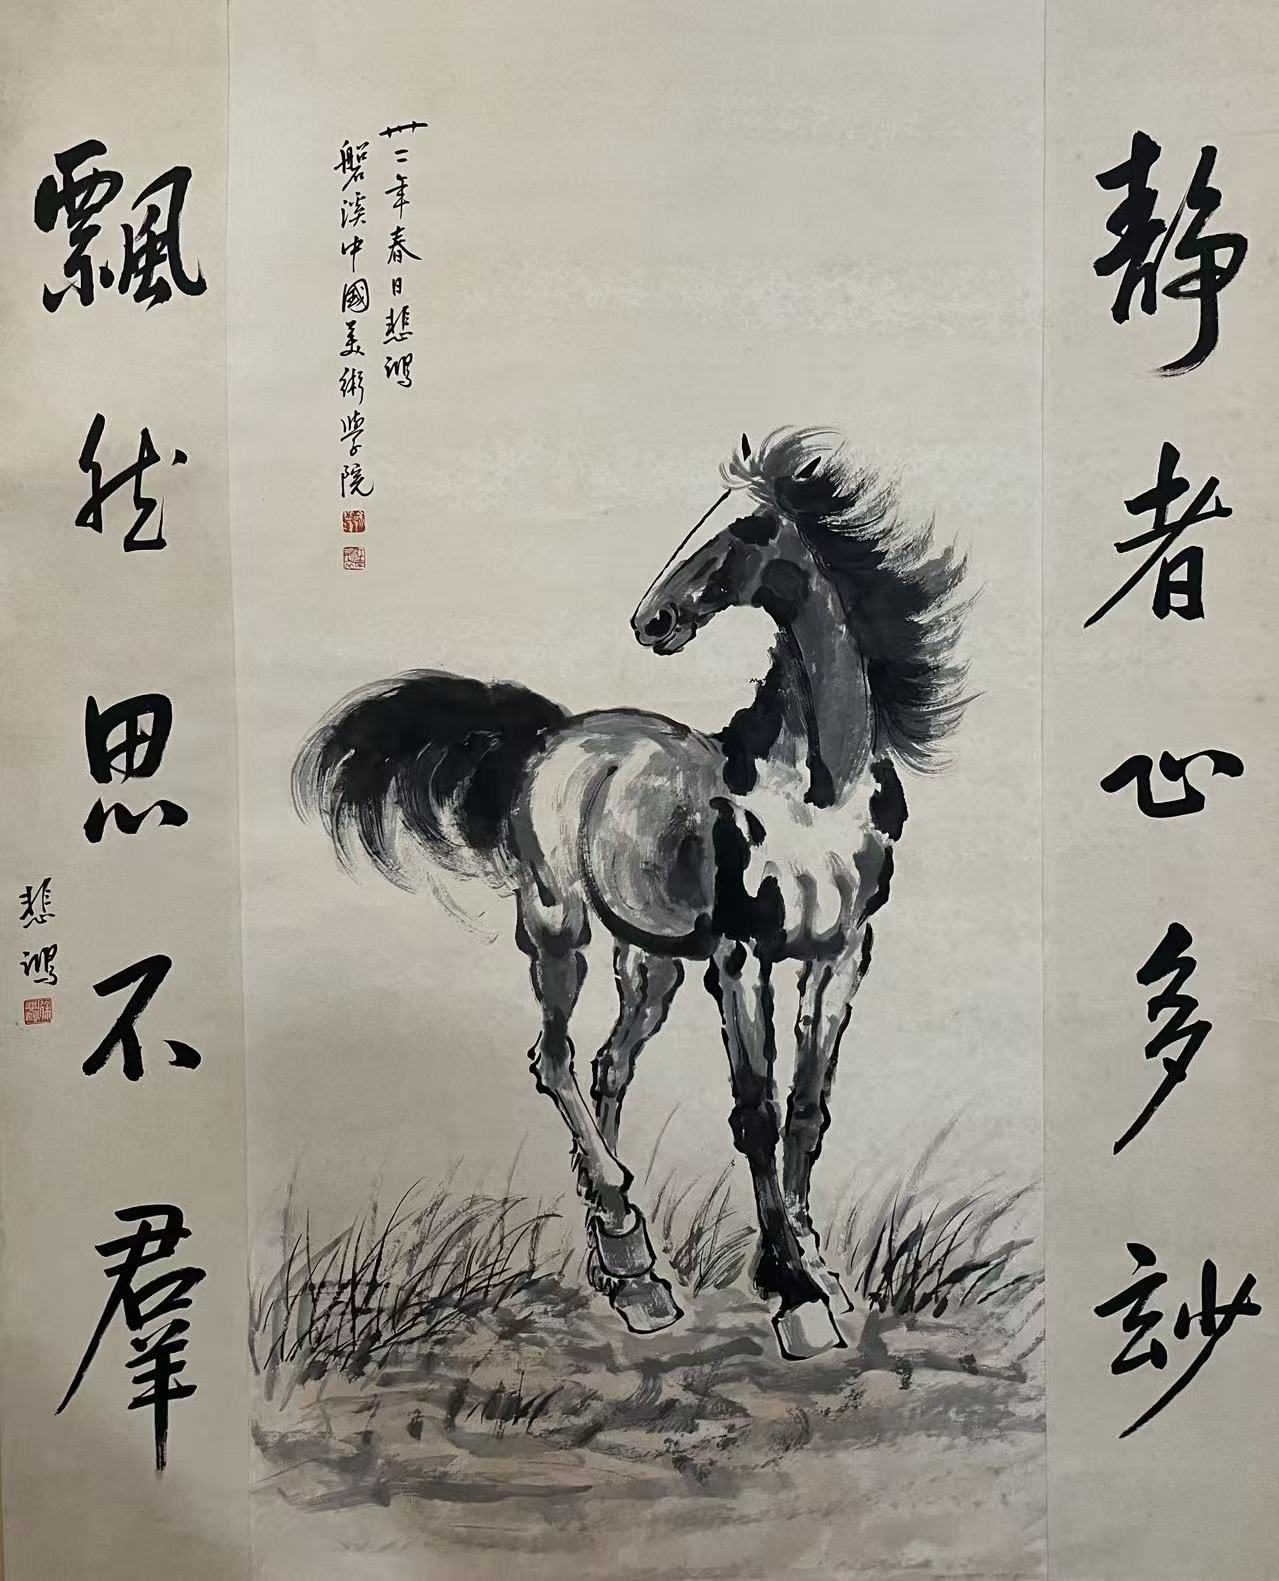 靜者心多玅
卅二年春日悲鴻
磐溪中國美術學院
飄然思不羣
悲鴻